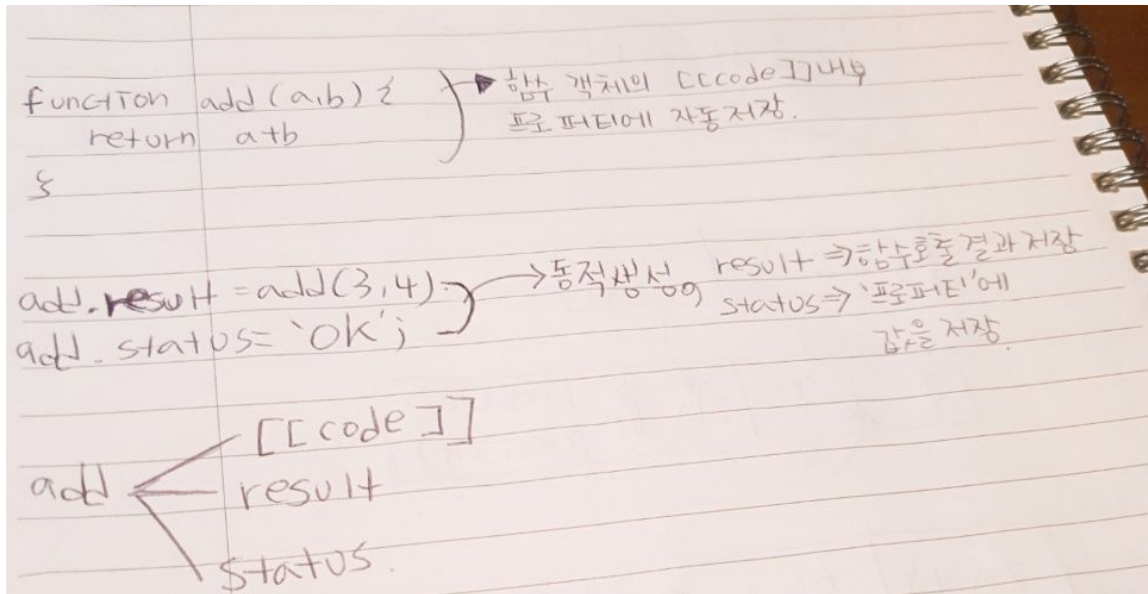 function add(a,b) {
return a+b
}
함수 객체의 [[code]]내부
프로퍼티에 자동저장.
add.result = add(3,4)
add.status= 'OK';
동적생성
result ⇒ 함수호출 결과 저장
status ⇒ '프로퍼티'에
값을 저장.
add
[[code]]
result
status.